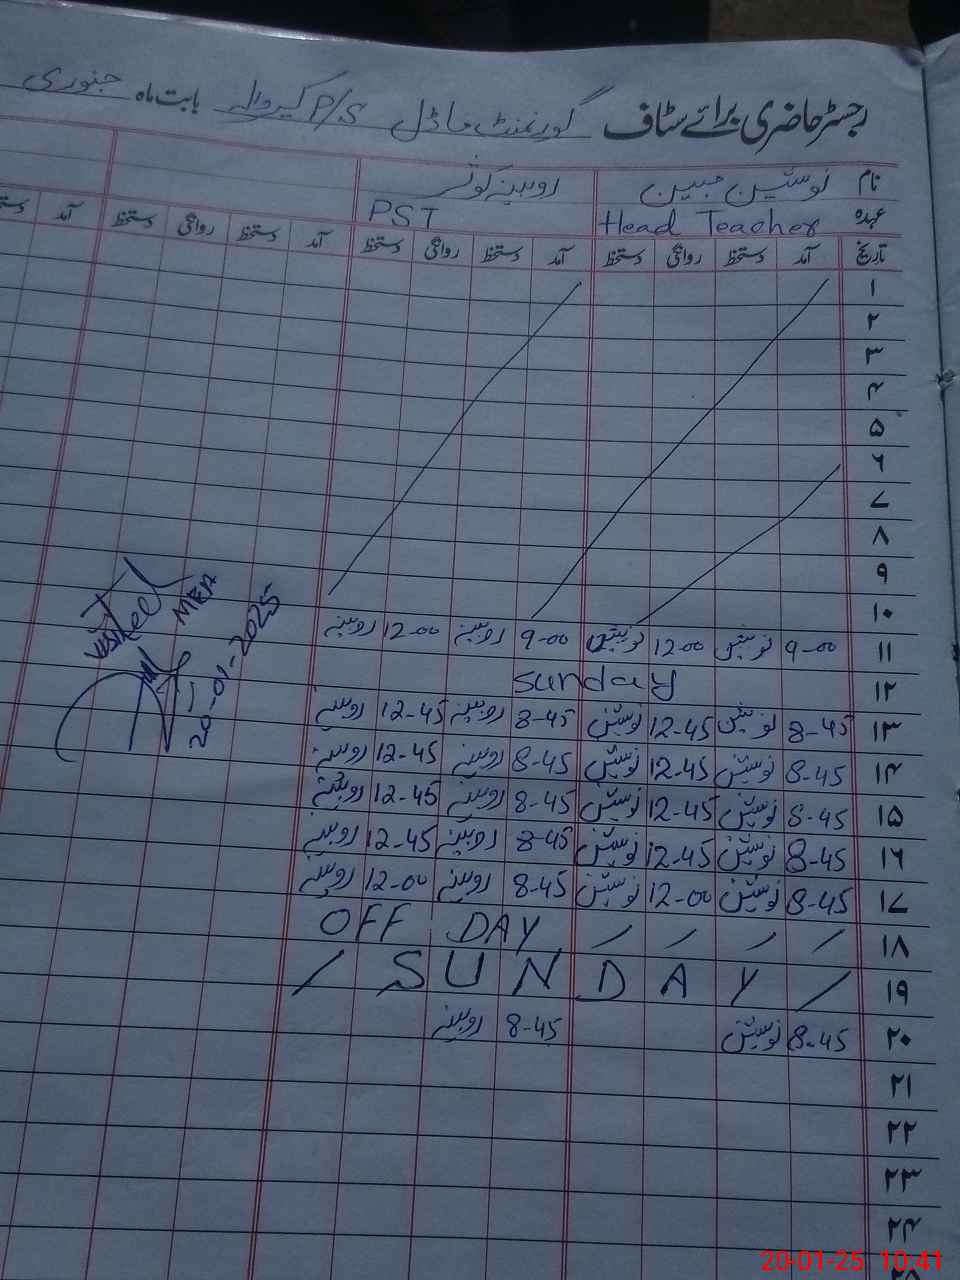 رجسٹر حاضری برائے سٹاف گورنمنٹ ماڈل P/S کیروالہ بابت ماہ جنوری
نام نوشین جبین روبینہ کوثر
عہدہ Head Teacher PST
تاریخ آمد دستخط روانگی دستخط آمد دستخط روانگی دستخط آمد دستخط روانگی دستخط آمد دستخط
۱
۲
۳
۴
۵
۶
۷
۸
۹
۱۰
۱۱ 9-00 نوشین 12-00 نوشین 9-00 روبینہ 12-00 روبینہ
۱۲ Sunday
۱۳ 8-45 نوشین 12-45 نوشین 8-45 روبینہ 12-45 روبینہ
۱۴ 8-45 نوشین 12-45 نوشین 8-45 روبینہ 12-45 روبینہ
۱۵ 8-45 نوشین 12-45 نوشین 8-45 روبینہ 12-45 روبینہ
۱۶ 8-45 نوشین 12-45 نوشین 8-45 روبینہ 12-45 روبینہ
۱۷ 8-45 نوشین 12-00 نوشین 8-45 روبینہ 12-00 روبینہ
۱۸ OFF DAY
۱۹ SUNDAY
۲۰ 8-45 نوشین 8-45 روبینہ
۲۱
۲۲
۲۳
۲۴
۲۵
MEA
20-01-2025
20-01-25 10:41